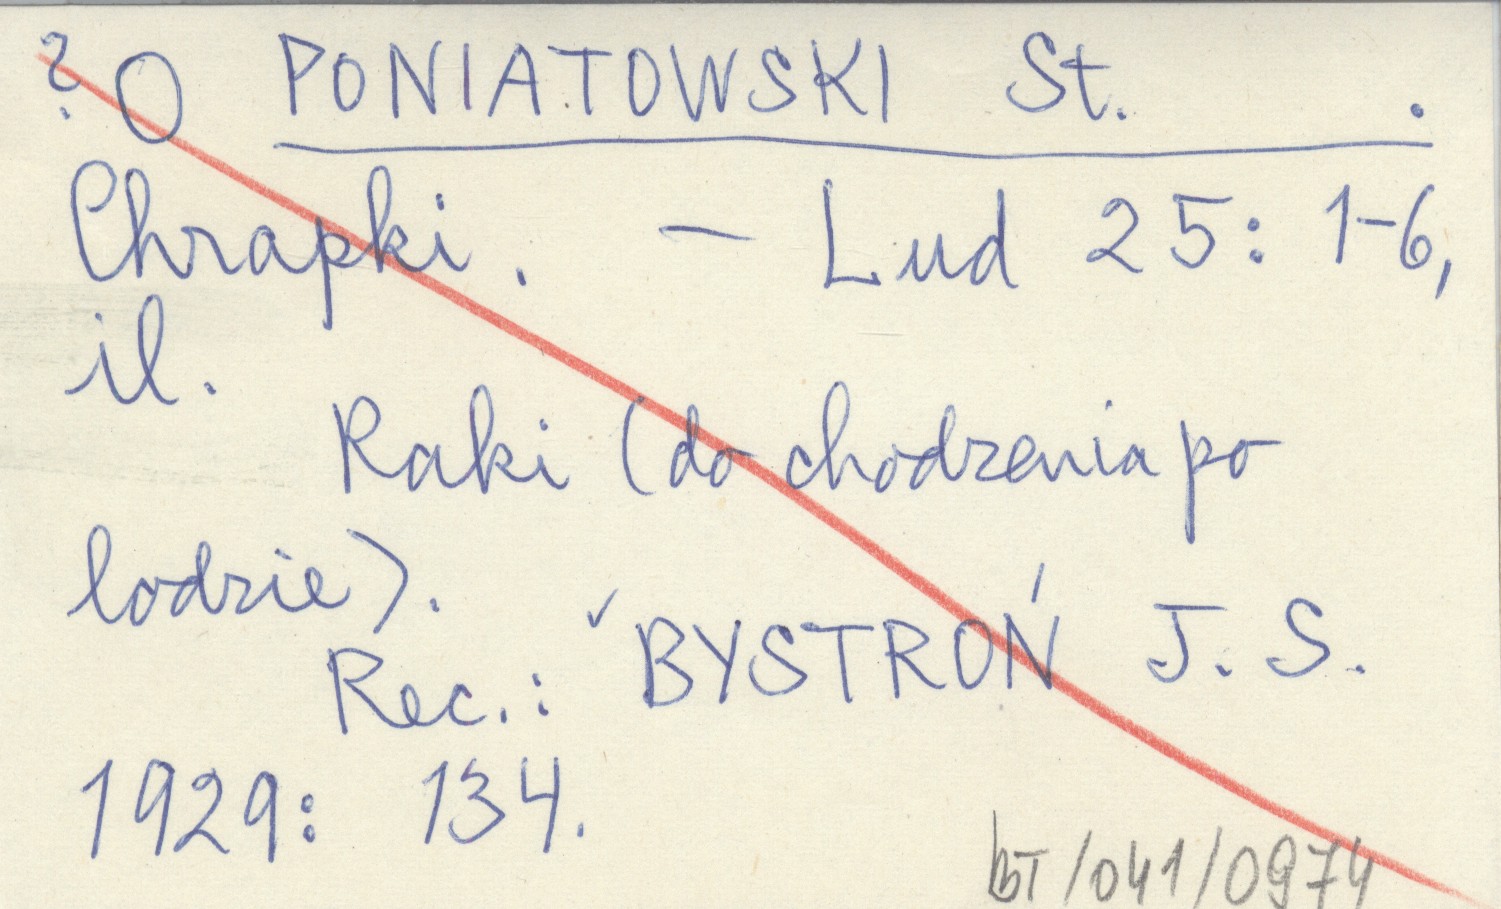 ? O PONIATOWSKI St. .
Chrapki. — Lud 25: 1-6,
il.
Raki (do chodzenia po
lodzie).
Rec.: ✓BYSTROŃ J. S.
1929: 134.
BT/041/0974